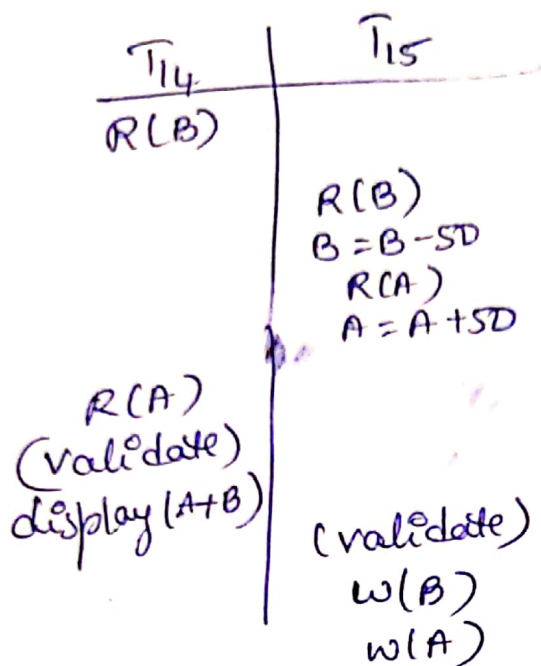 T14 T15
R(B)
R(B)
B = B - 50
R(A)
A = A + 50
R(A)
(validate)
display(A+B)
(validate)
W(B)
W(A)